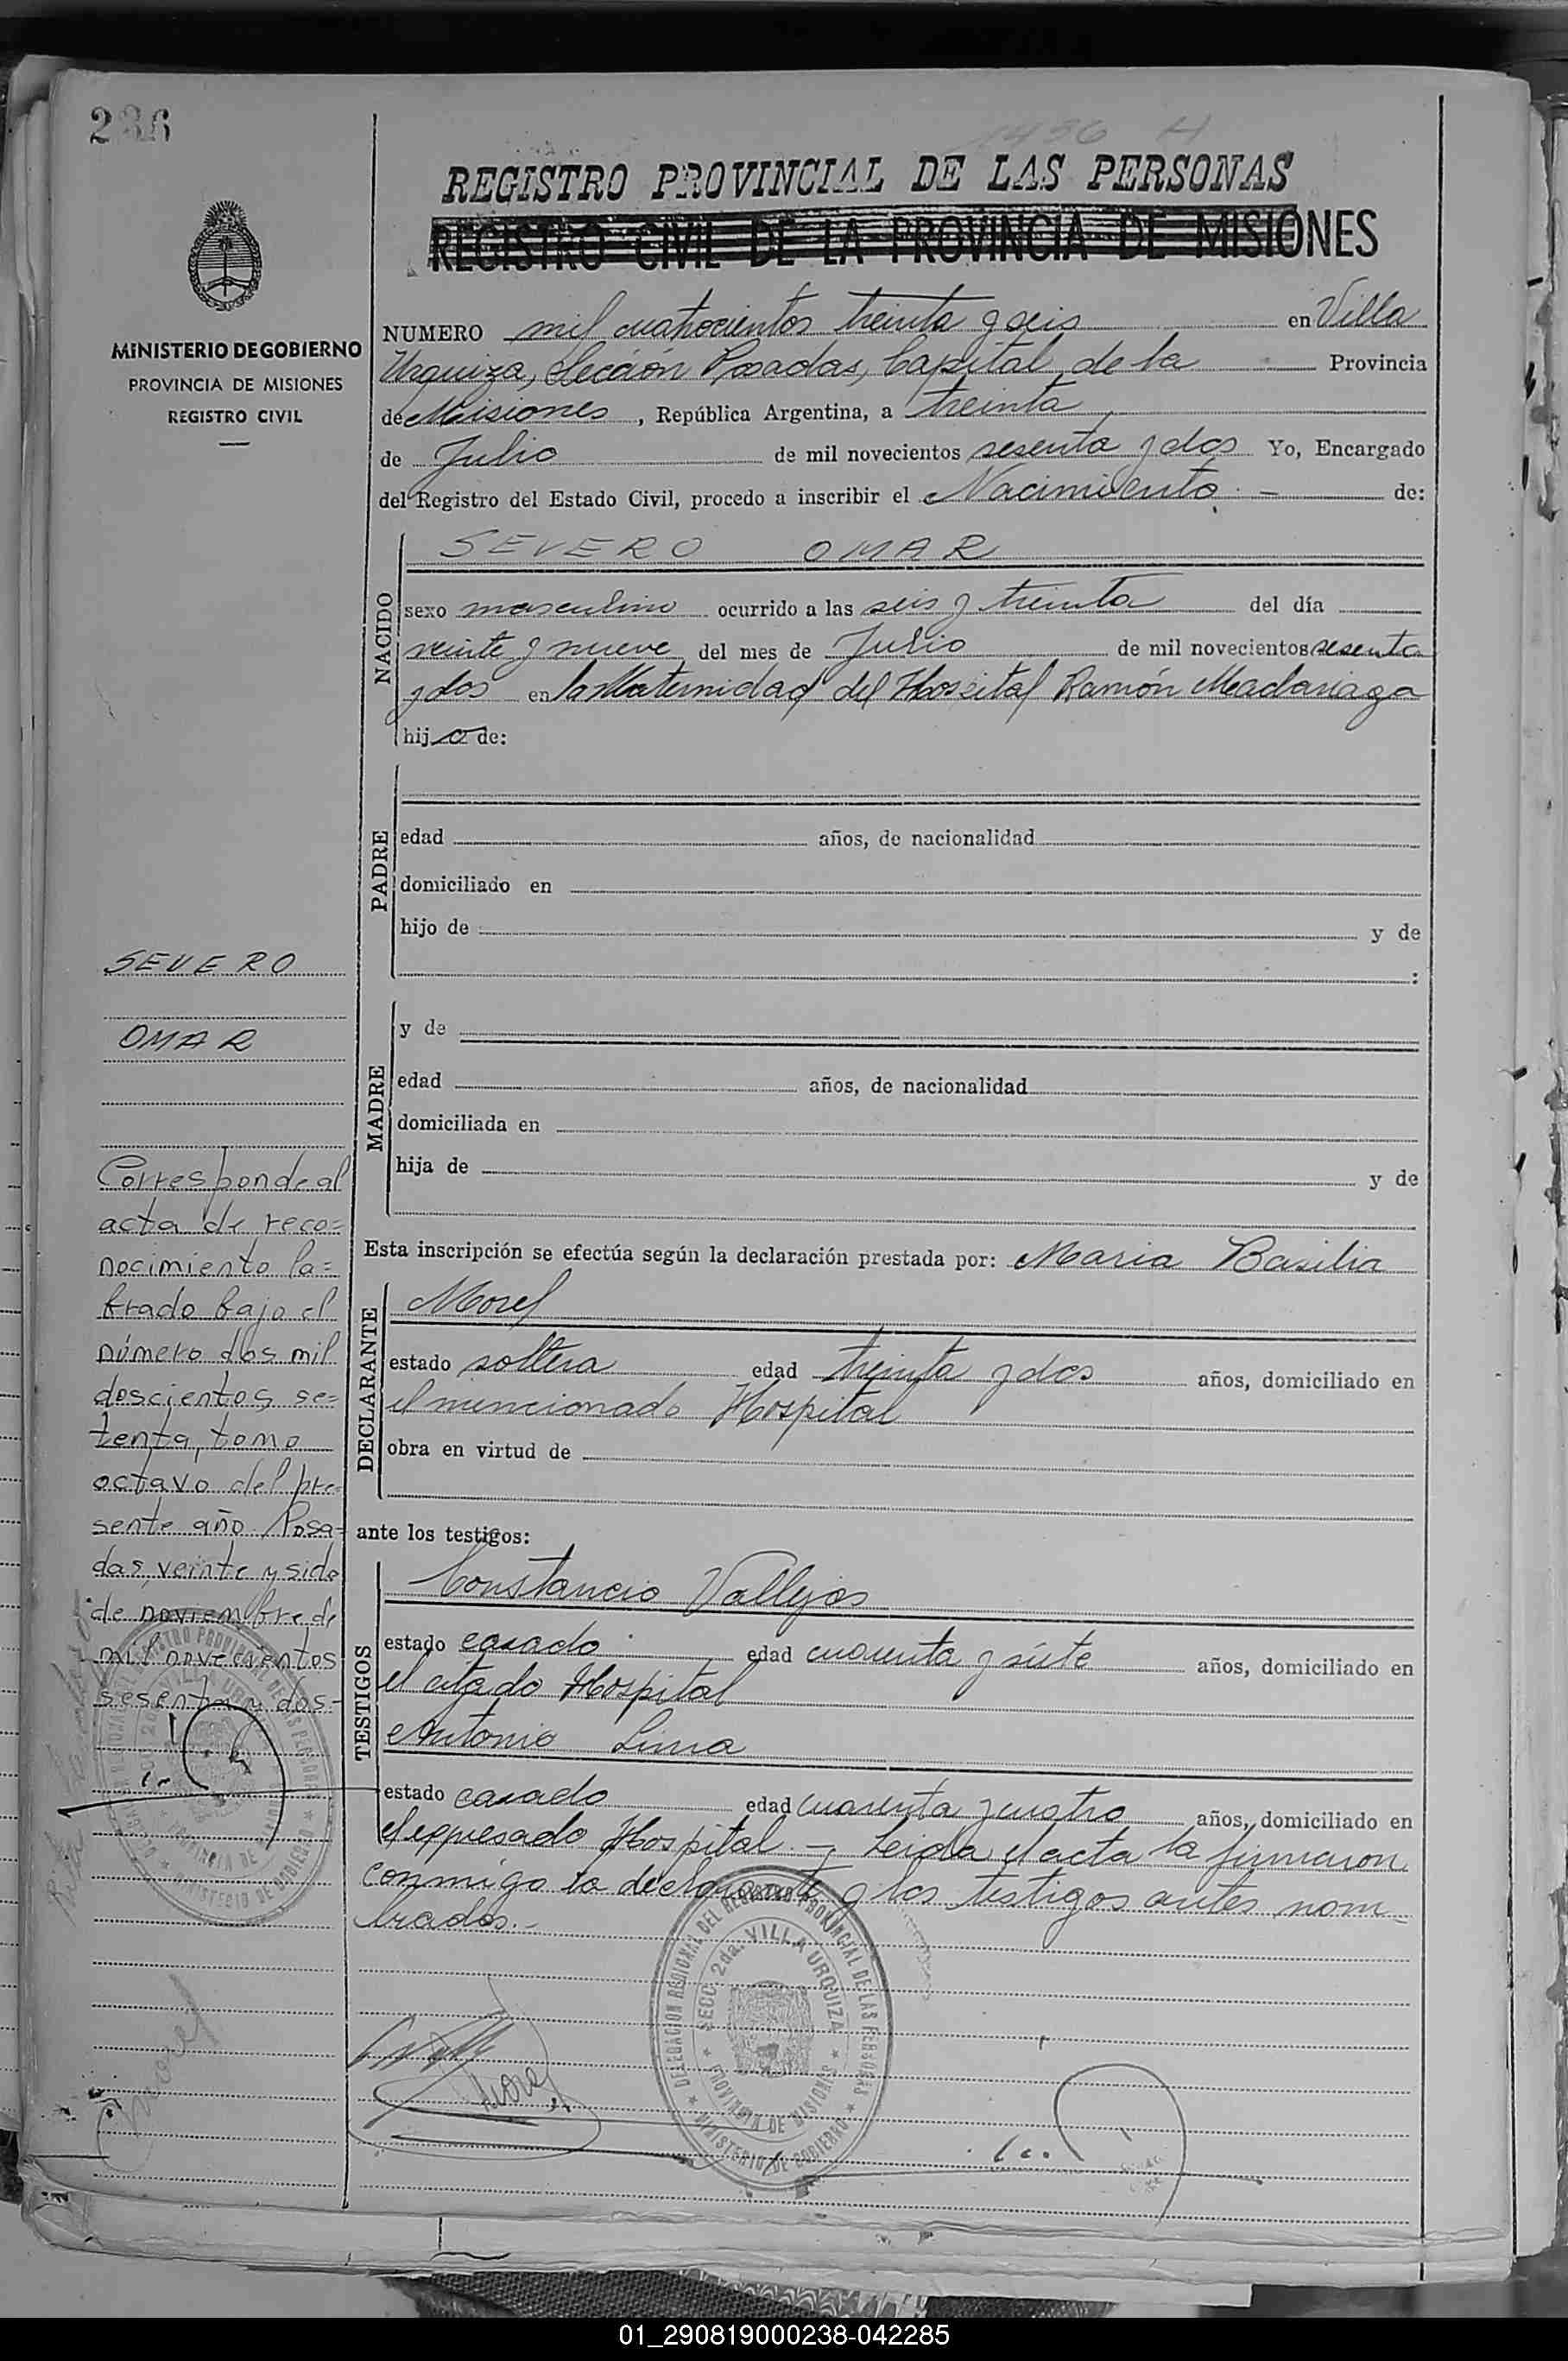 236
1436 H
REGISTRO PROVINCIAL DE LAS PERSONAS
REGISTRO CIVIL DE LA PROVINCIA DE MISIONES
MINISTERIO DE GOBIERNO
PROVINCIA DE MISIONES
REGISTRO CIVIL
NUMERO mil cuatrocientos treinta y seis en Villa
Urquiza, Sección Posadas, Capital de la Provincia
de Misiones, República Argentina, a treinta
de Julio de mil novecientos sesenta y dos Yo, Encargado
del Registro del Estado Civil, procedo a inscribir el Nacimiento. - de:
NACIDO
SEVERO OMAR
sexo masculino ocurrido a las seis y treinta del día
veinte y nueve del mes de Julio de mil novecientos sesenta
y dos en la Maternidad del Hospital Ramón Madariaga
hijo de:
PADRE
edad años, de nacionalidad
domiciliado en
hijo de y de
:
MADRE
y de
edad años, de nacionalidad
domiciliada en
hija de y de
Esta inscripción se efectúa según la declaración prestada por: Maria Basilia
DECLARANTE
Morel
estado soltera edad treinta y dos años, domiciliado en
el mencionado Hospital
obra en virtud de
ante los testigos:
TESTIGOS
Constancio Vallejos
estado casado edad cuarenta y siete años, domiciliado en
el citado Hospital
Antonio Lima
estado casado edad cuarenta y cuatro años, domiciliado en
el expresado Hospital. - Leida el acta la firmaron
conmigo la declarante y los testigos antes nom-
brados. -
SEVERO
OMAR
Corresponde al
acta de reco=
nocimiento la=
brado bajo el
número dos mil
doscientos se=
tenta, tomo
octavo del pre=
sente año Posa=
das, veinte y siete
de noviembre de
mil novecientos
sesenta y dos-
DELEGACION REGIONAL DEL REGISTRO PROVINCIAL DE LAS PERSONAS
SECC. 2da. VILLA URQUIZA
PROVINCIA DE MISIONES
MINISTERIO DE GOBIERNO
Morel
Morel
01_290819000238-042285